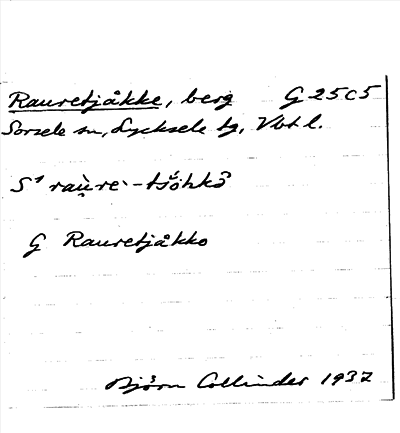 Rauretjåkke, berg G 25 c 5
Sorsele sn, Lycksele tg, Vbt l.
G Rauretjåkko
Björn Collinder 1937